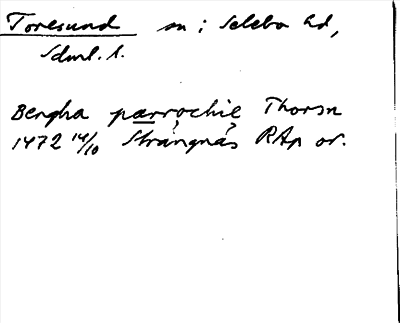 Toresund sn i Selebo hd,
Sdml. l.
Bengha parrochie Thorsn
1472 14/10 Strängnäs RAp or.